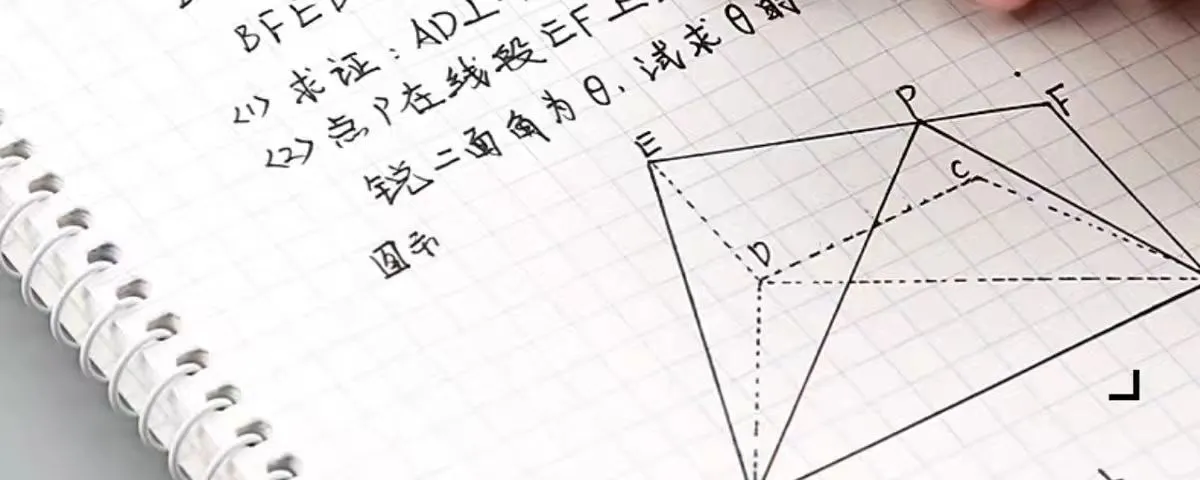 BFED
(1) 求证: AD⊥
(2) 点P在线段EF上
锐二面角为θ, 试求θ的
图示
E
P
F
C
D